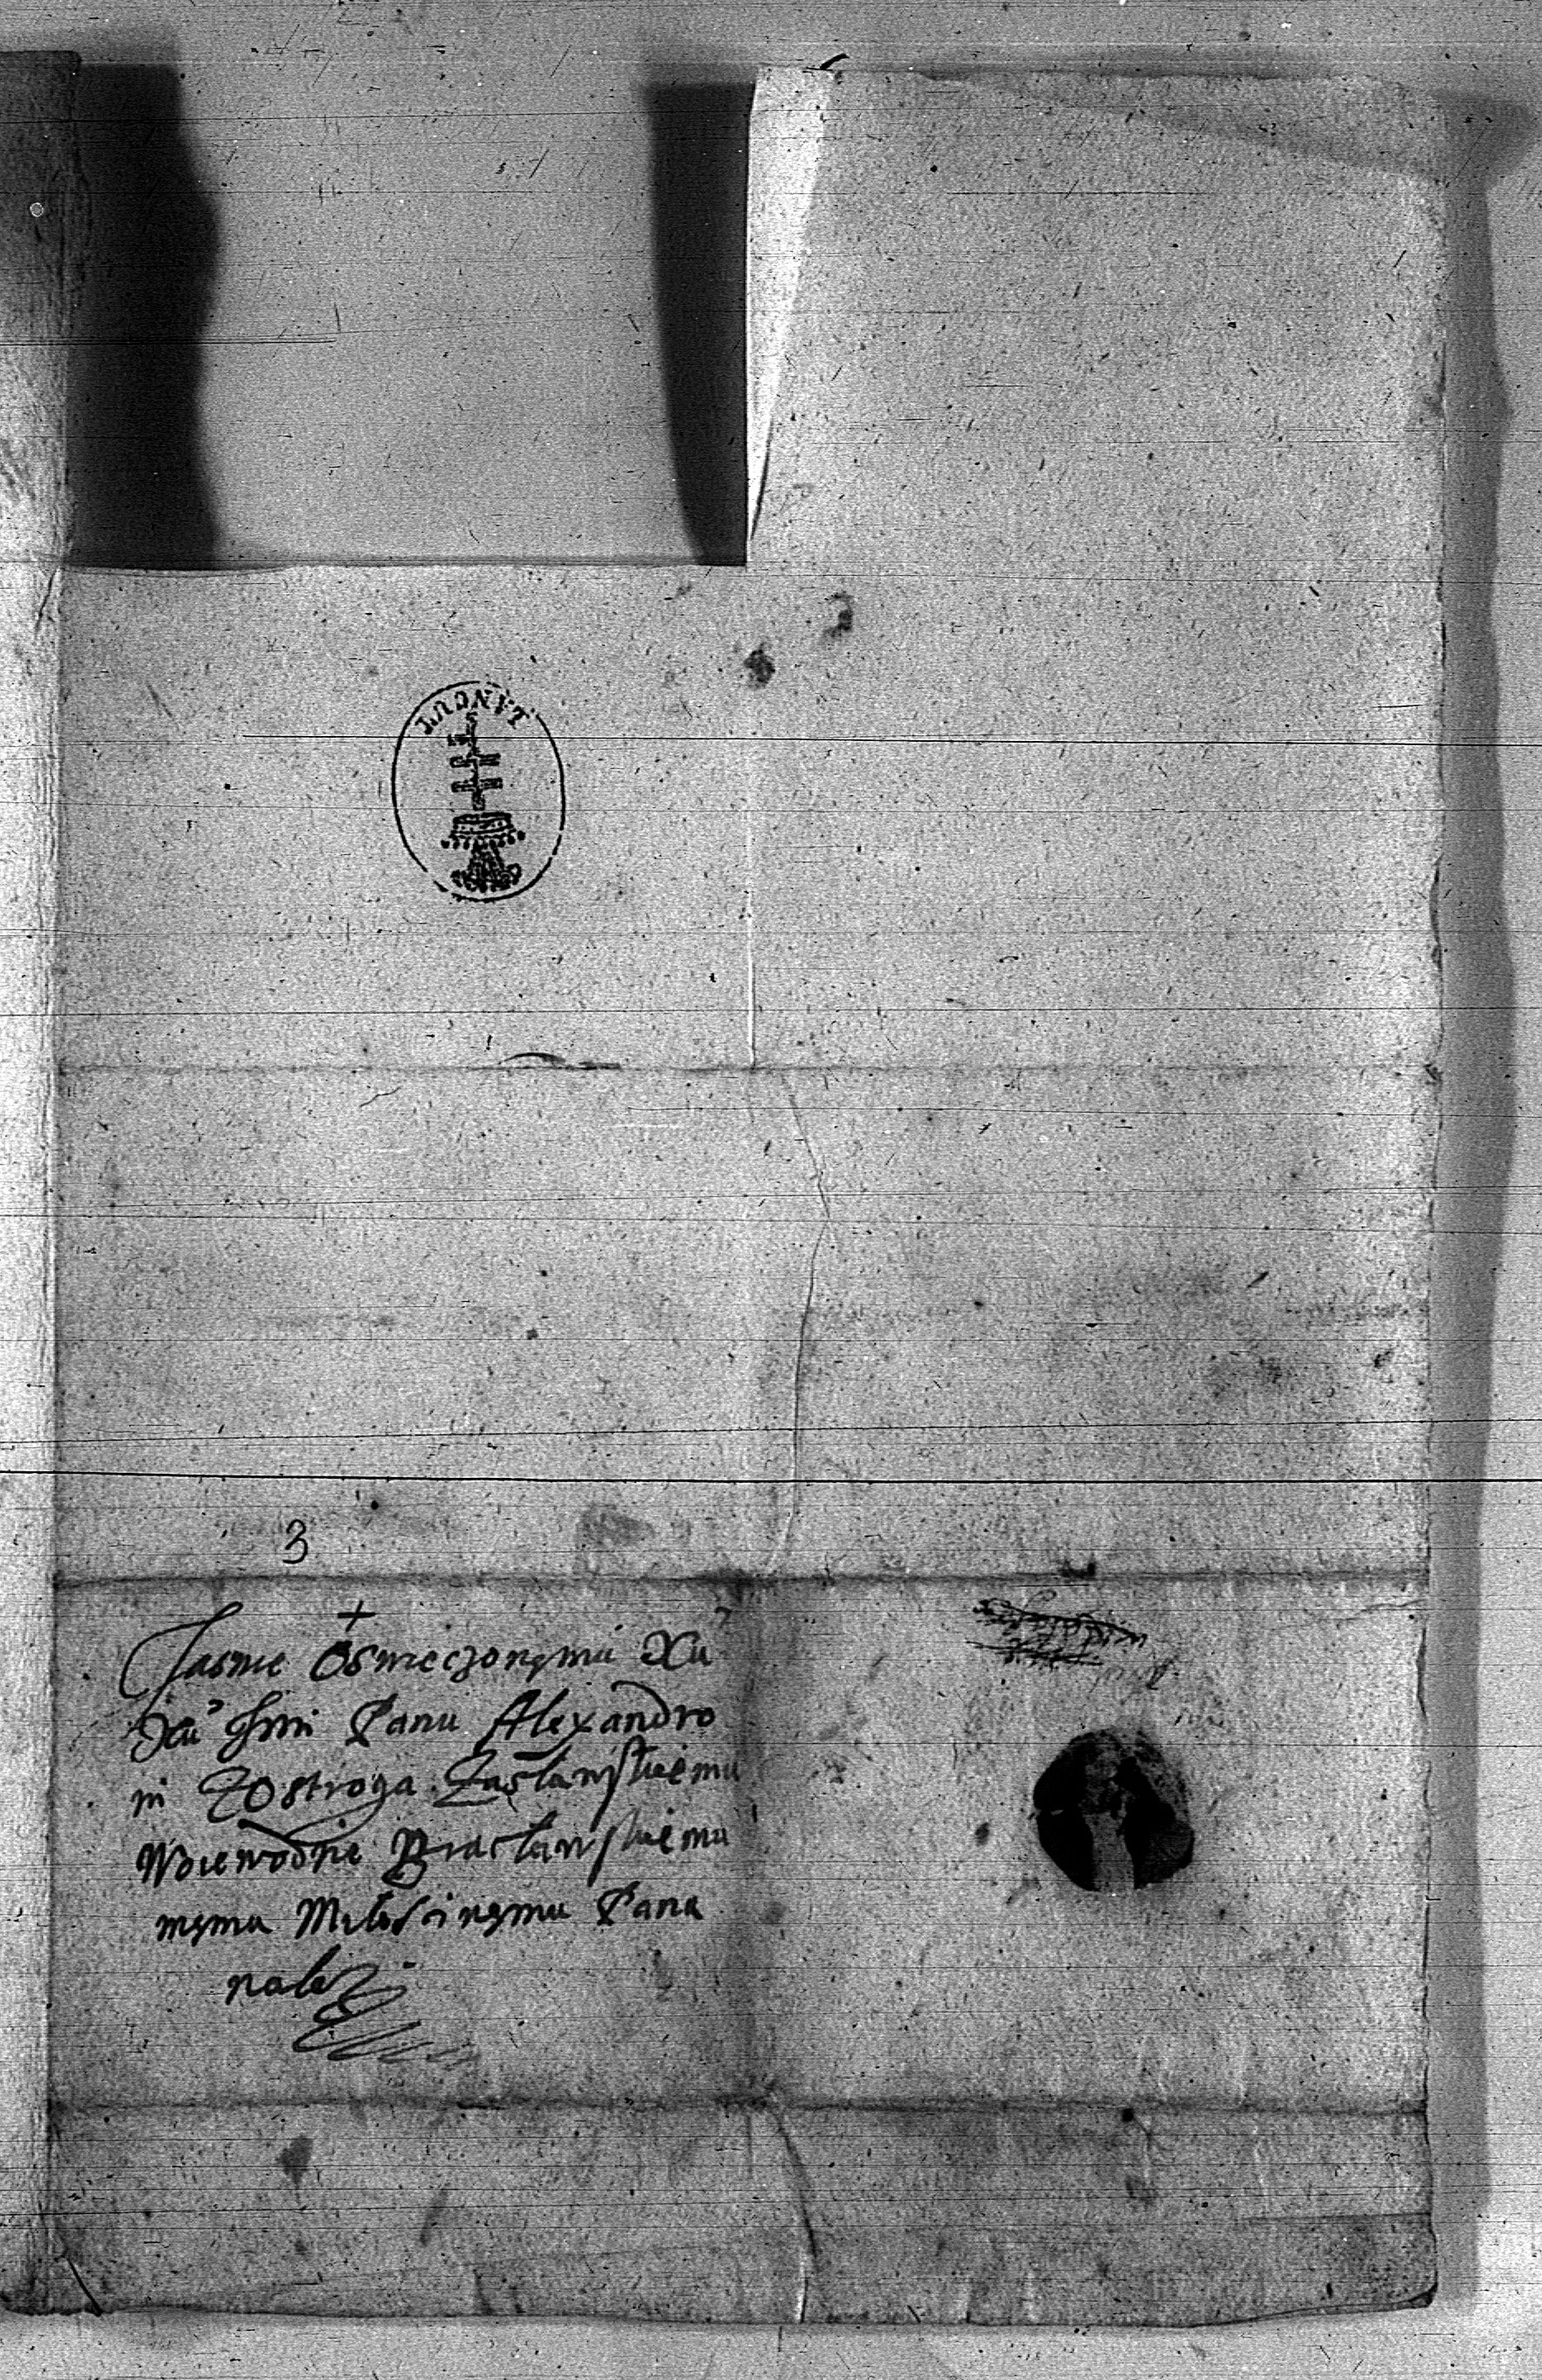 ŁAŃCUT
3
+
Jasnie Oswieczonęmu Xu
Xu Jmi Panu Alexandro
wi Zostroga Zasławskiemu
Woiewodzie Bracławskiemu
męmu Miłosciwęmu Panu
należ